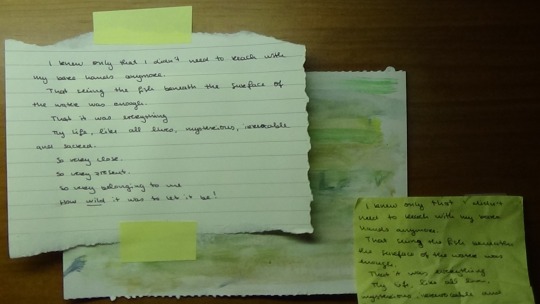 I knew only that I didn't need to reach with
my bare hands anymore.
That seing the fish beneath the surface of
the water was enough.
That it was everything
My life, like all lives, mysterious, irrevocable
and sacred.
So very close.
So very present.
So very belonging to me
How wild it was to let it be!
I knew only that I didn't
need to reach with my bare
hands anymore.
That seing the fish beneath
the surface of the water was
enough.
That it was everything
My life, like all lives,
mysterious, irrevocable and